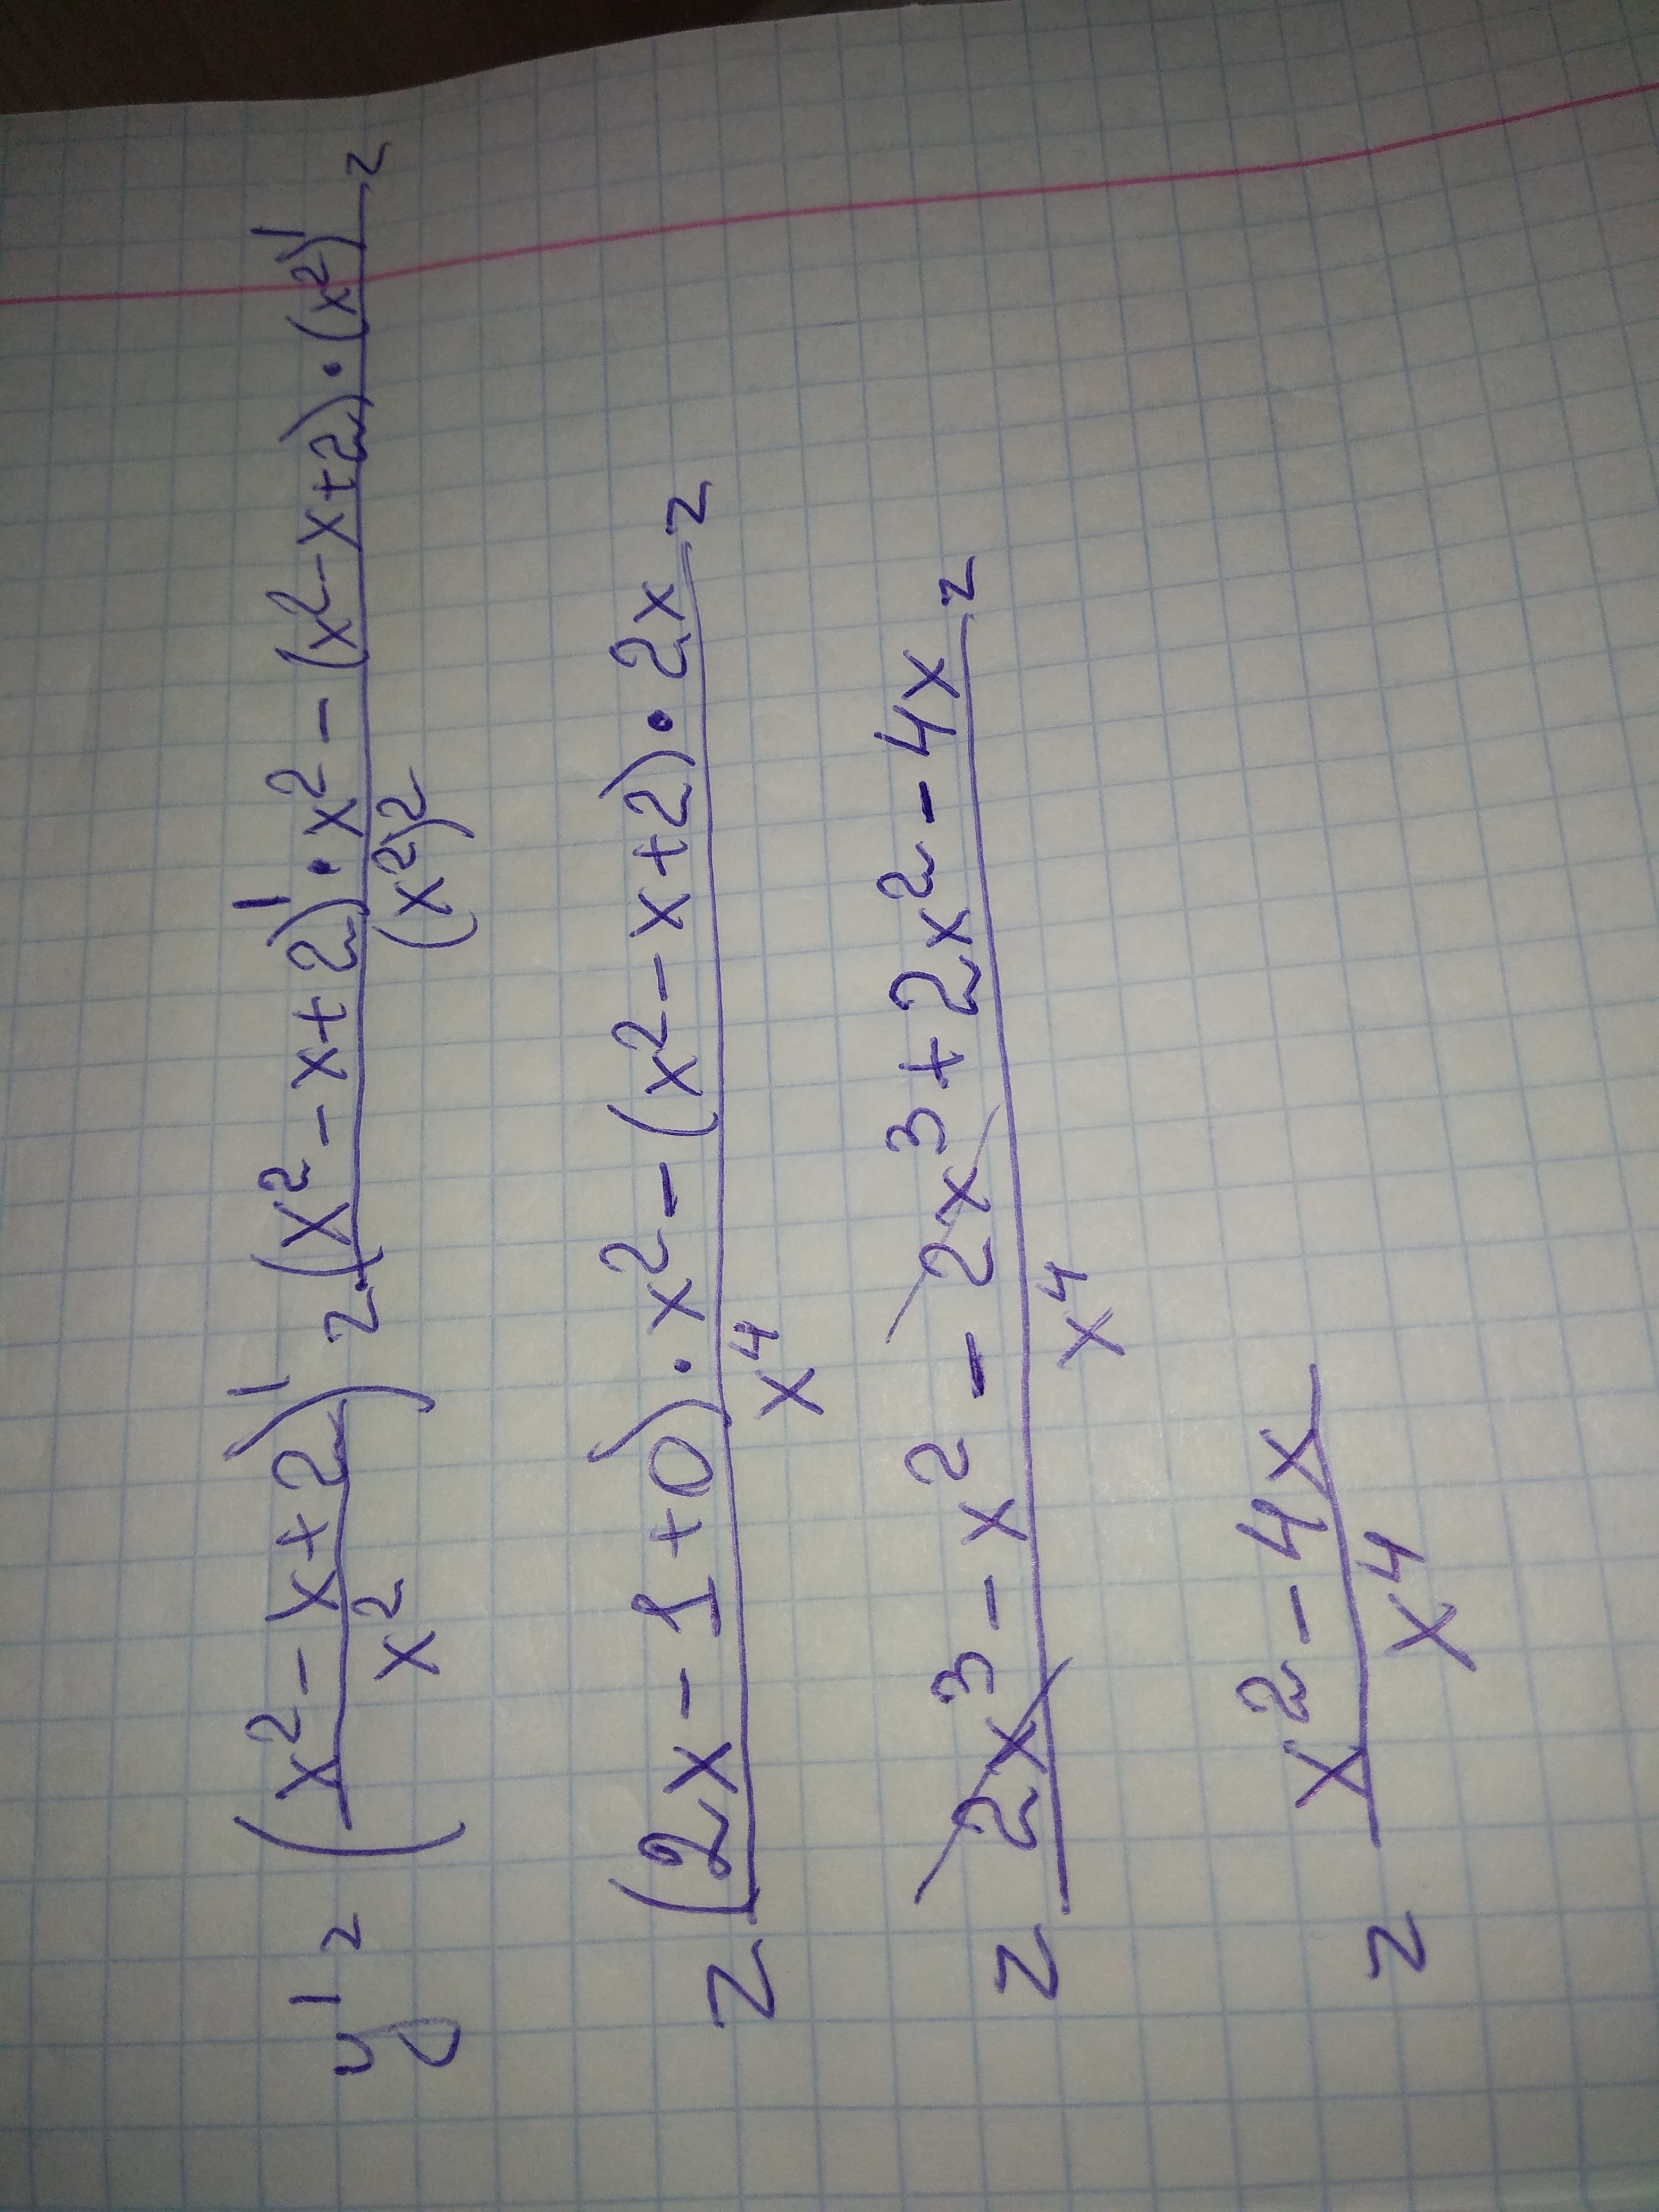 y' = ((x² - x + 2)/x²)' = ((x² - x + 2)' · x² - (x² - x + 2) · (x²)')/(x²)² =
= ((2x - 1 + 0) · x² - (x² - x + 2) · 2x)/x⁴ =
= (2x³ - x² - 2x³ + 2x² - 4x)/x⁴ =
= (x² - 4x)/x⁴